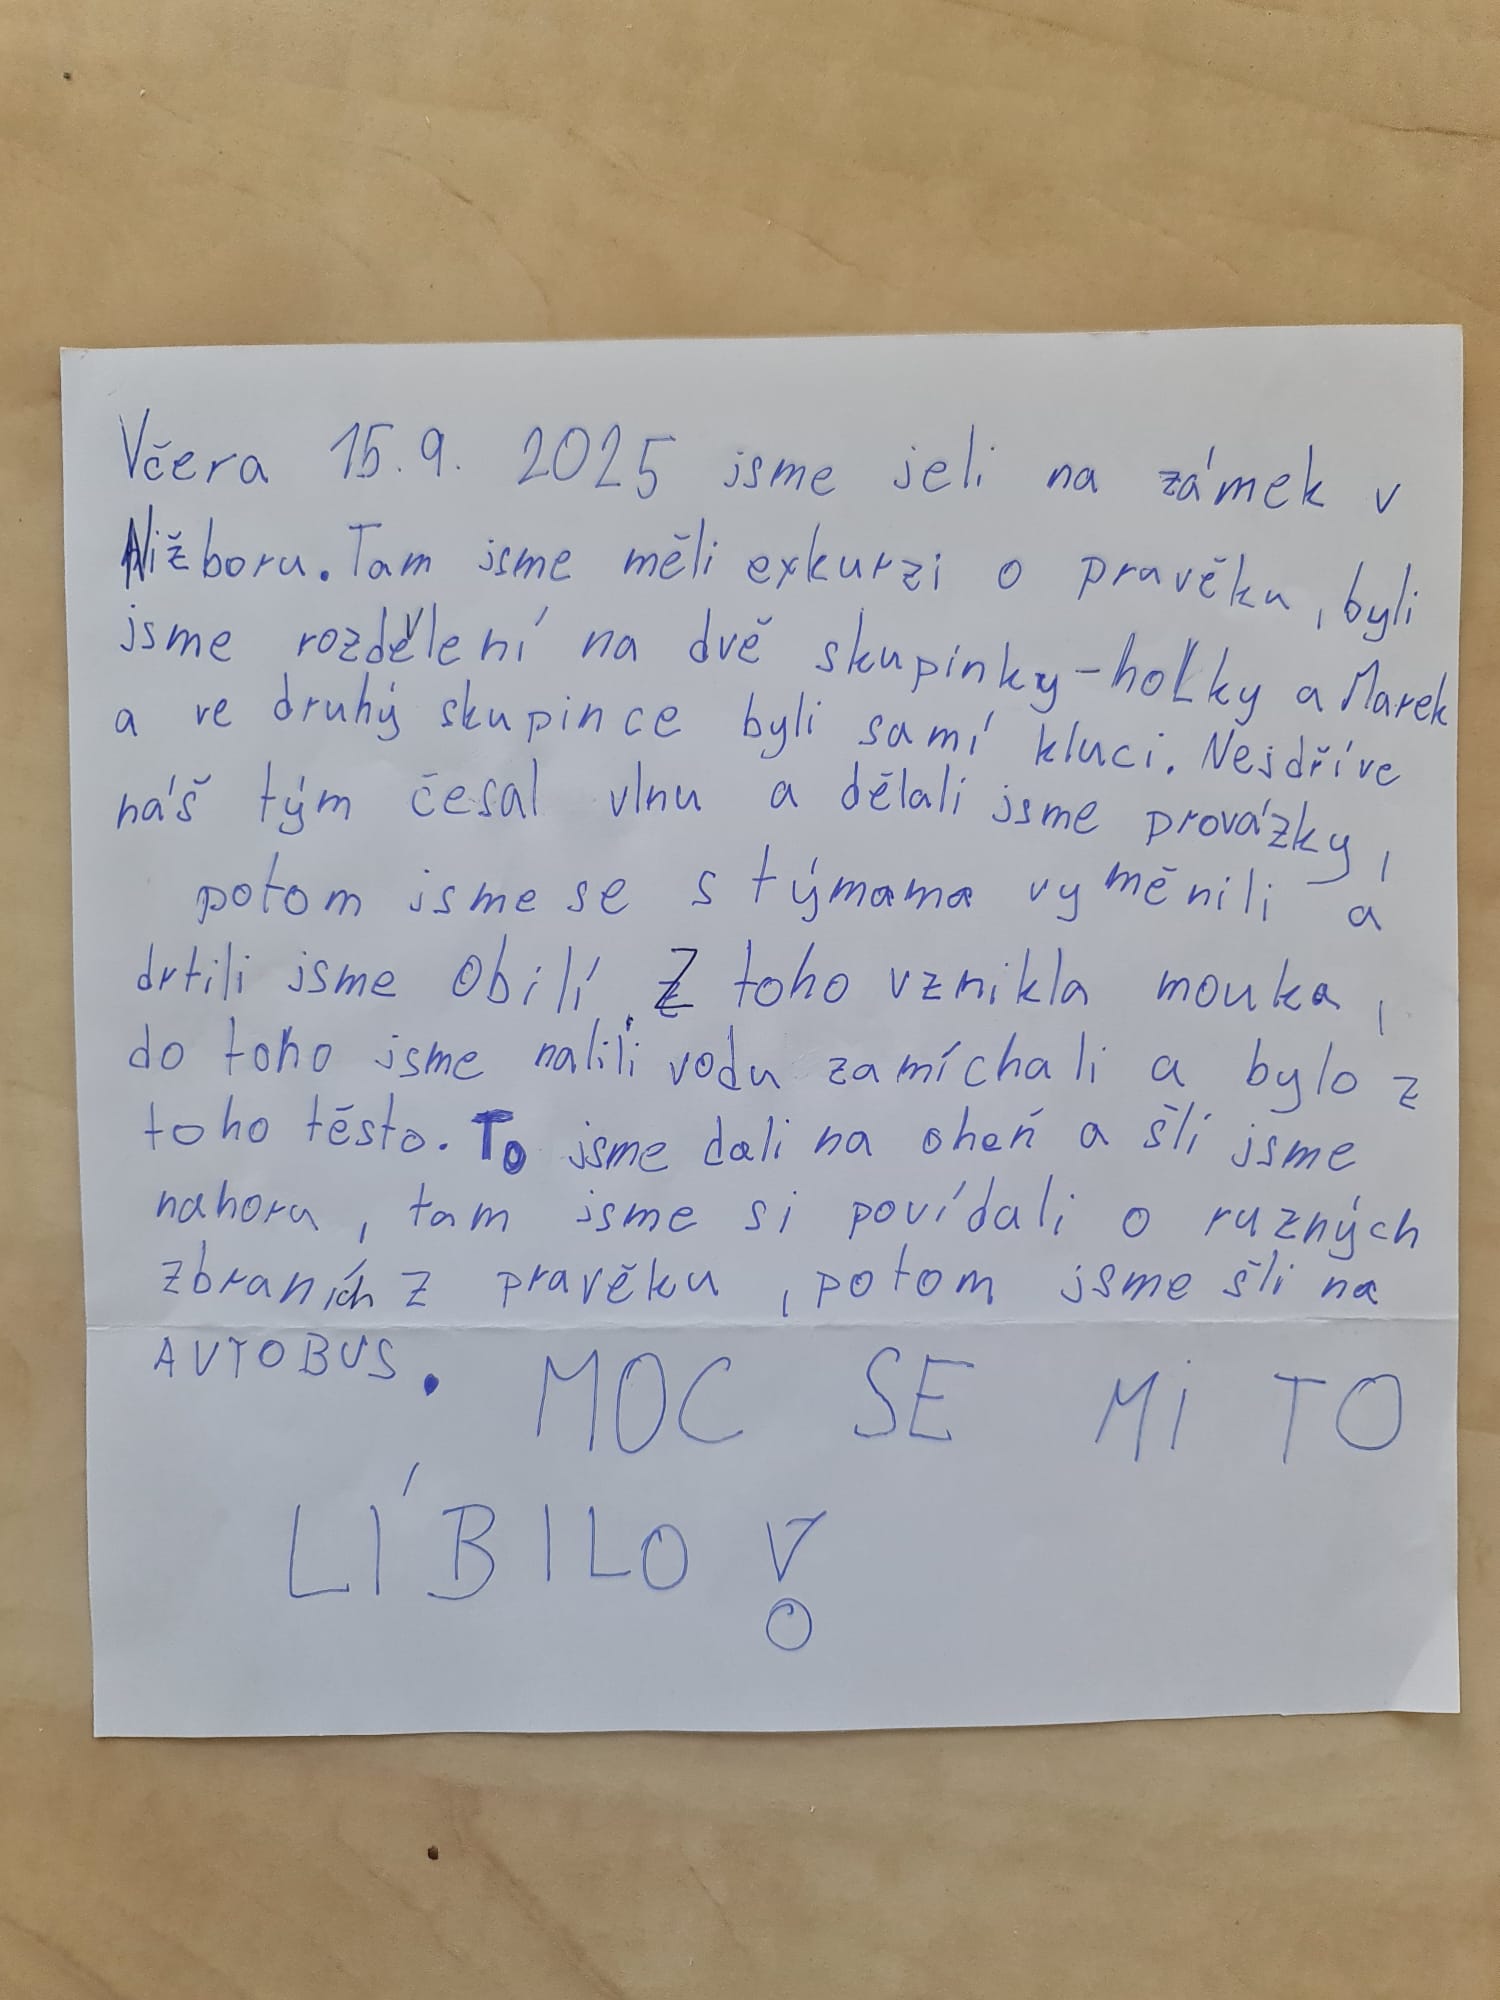 Včera 15.9. 2025 jsme jeli na zámek v
Nižboru. Tam jsme měli exkurzi o pravěku, byli
jsme rozdělení na dvě skupinky-holky a Marek
a ve druhý skupince byli samí kluci. Nejdříve
náš tým česal vlnu a dělali jsme provázky,
potom jsme se s týmama vyměnili a
drtili jsme obilí. Z toho vznikla mouka,
do toho jsme nalili vodu zamíchali a bylo z
toho těsto. To jsme dali na oheń a šli jsme
nahoru, tam jsme si povídali o ruzných
zbraních z pravěku, potom jsme šli na
AUTOBUS. MOC SE MI TO
LÍBILO!